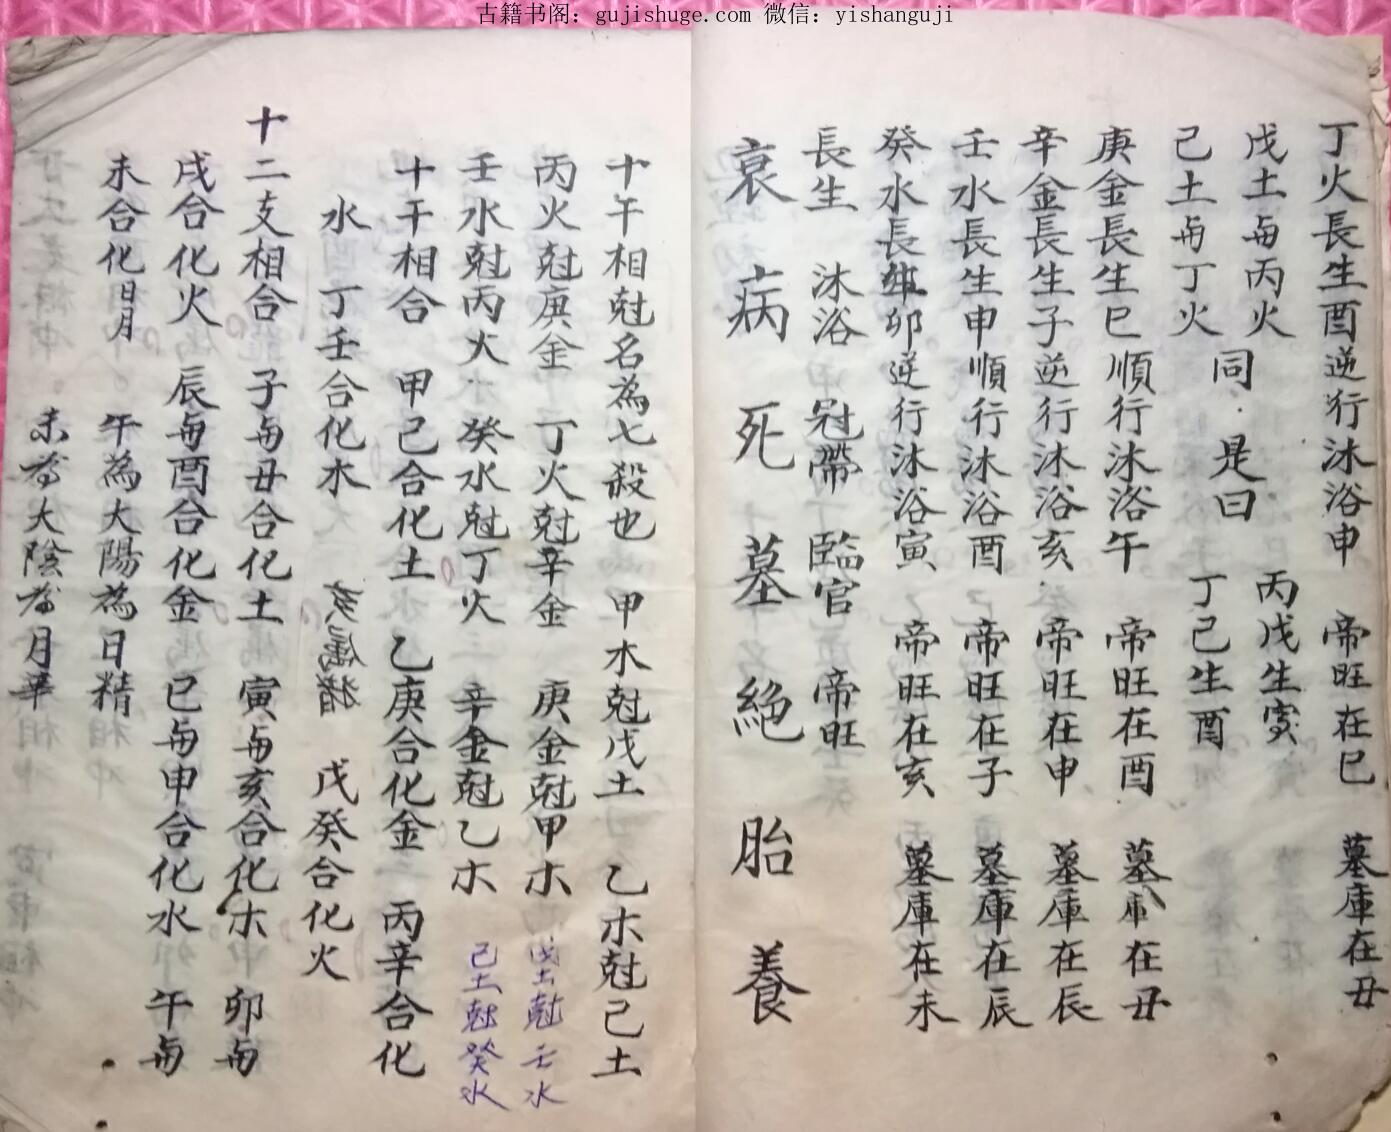 古籍书阁：gujishuge.com 微信：yishanguji
丁火長生酉逆行沐浴申　帝旺在巳　墓庫在丑
戊土与丙火　丙戊生寅
同．是曰
己土与丁火　丁己生酉
庚金長生巳順行沐浴午　帝旺在酉　墓庫在丑
辛金長生子逆行沐浴亥　帝旺在申　墓庫在辰
壬水長生申順行沐浴酉　帝旺在子　墓庫在辰
癸水長生卯逆行沐浴寅　帝旺在亥　墓庫在未
長生　沐浴　冠帶　臨官　帝旺
衰　病　死　墓　絕　胎　養
十干相尅名為七殺也　甲木尅戊土　乙木尅己土
丙火尅庚金　丁火尅辛金　庚金尅甲木　戊土尅壬水
壬水尅丙火　癸水尅丁火　辛金尅乙木　己土尅癸水
十干相合　甲己合化土　乙庚合化金　丙辛合化
水　丁壬合化木　戊癸合化火
亥属猪
十二支相合　子与丑合化土　寅与亥合化木　卯与
戌合化火　辰与酉合化金　巳与申合化水　午与
未合化日月　午為大陽為日精
未為大陰為月華